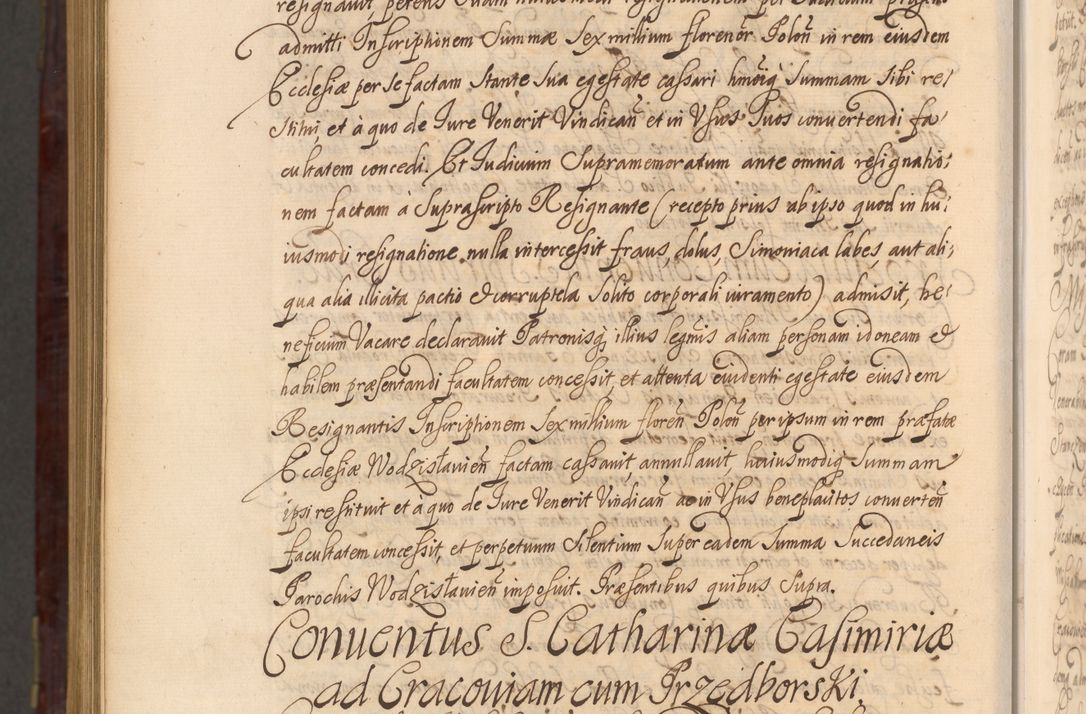 admitti Inscriptionem Summæ Sex millium florenor̃ Polon̄ in rem eiusdem
Ecclesiæ per se factam stante sua egestate cassari hmōiq̃ Summam sibi re:
stitui, et à quo de Jure Venerit Vindican̄ et in Vsus suos conuertendi fa:
cultatem concedi. Et Judicium Supramemoratum ante omnia resignatio:
nem factam à Suprascripto Resignante (recepto prius ab ipso quod in hu:
iusmodi resignatione nulla intercessit fraus, dolus, Simoniaca labes, aut ali:
qua alia illicita pactio et corruptela solito corporali iuramento) admisit, be:
neficium Vacare declarauit Patronisq̃ illius legmis aliam personam idoneam et
habilem præsentandi facultatem concessit, et attenta euidenti egestate eiusdem
Resignantis Inscriptionem sex millium floren̄ Polon̄ per ipsum in rem præfatæ
Ecclesiæ Wodzislauien̄ factam cassauit, annullauit, huiusmodiq̃ Summam
ipsi restituit et à quo de Jure Venerit Vindican̄ ac in Vsus beneplacitos conuerten̄
facultatem concessit, et perpetuum silentium super eadem Summa Succedaneis
Parochis Wodzislauien̄ imposuit. Præsentibus quibus supra.
Conuentus S. Catharinæ Casimiriæ
ad Cracouiam cum Przedborski